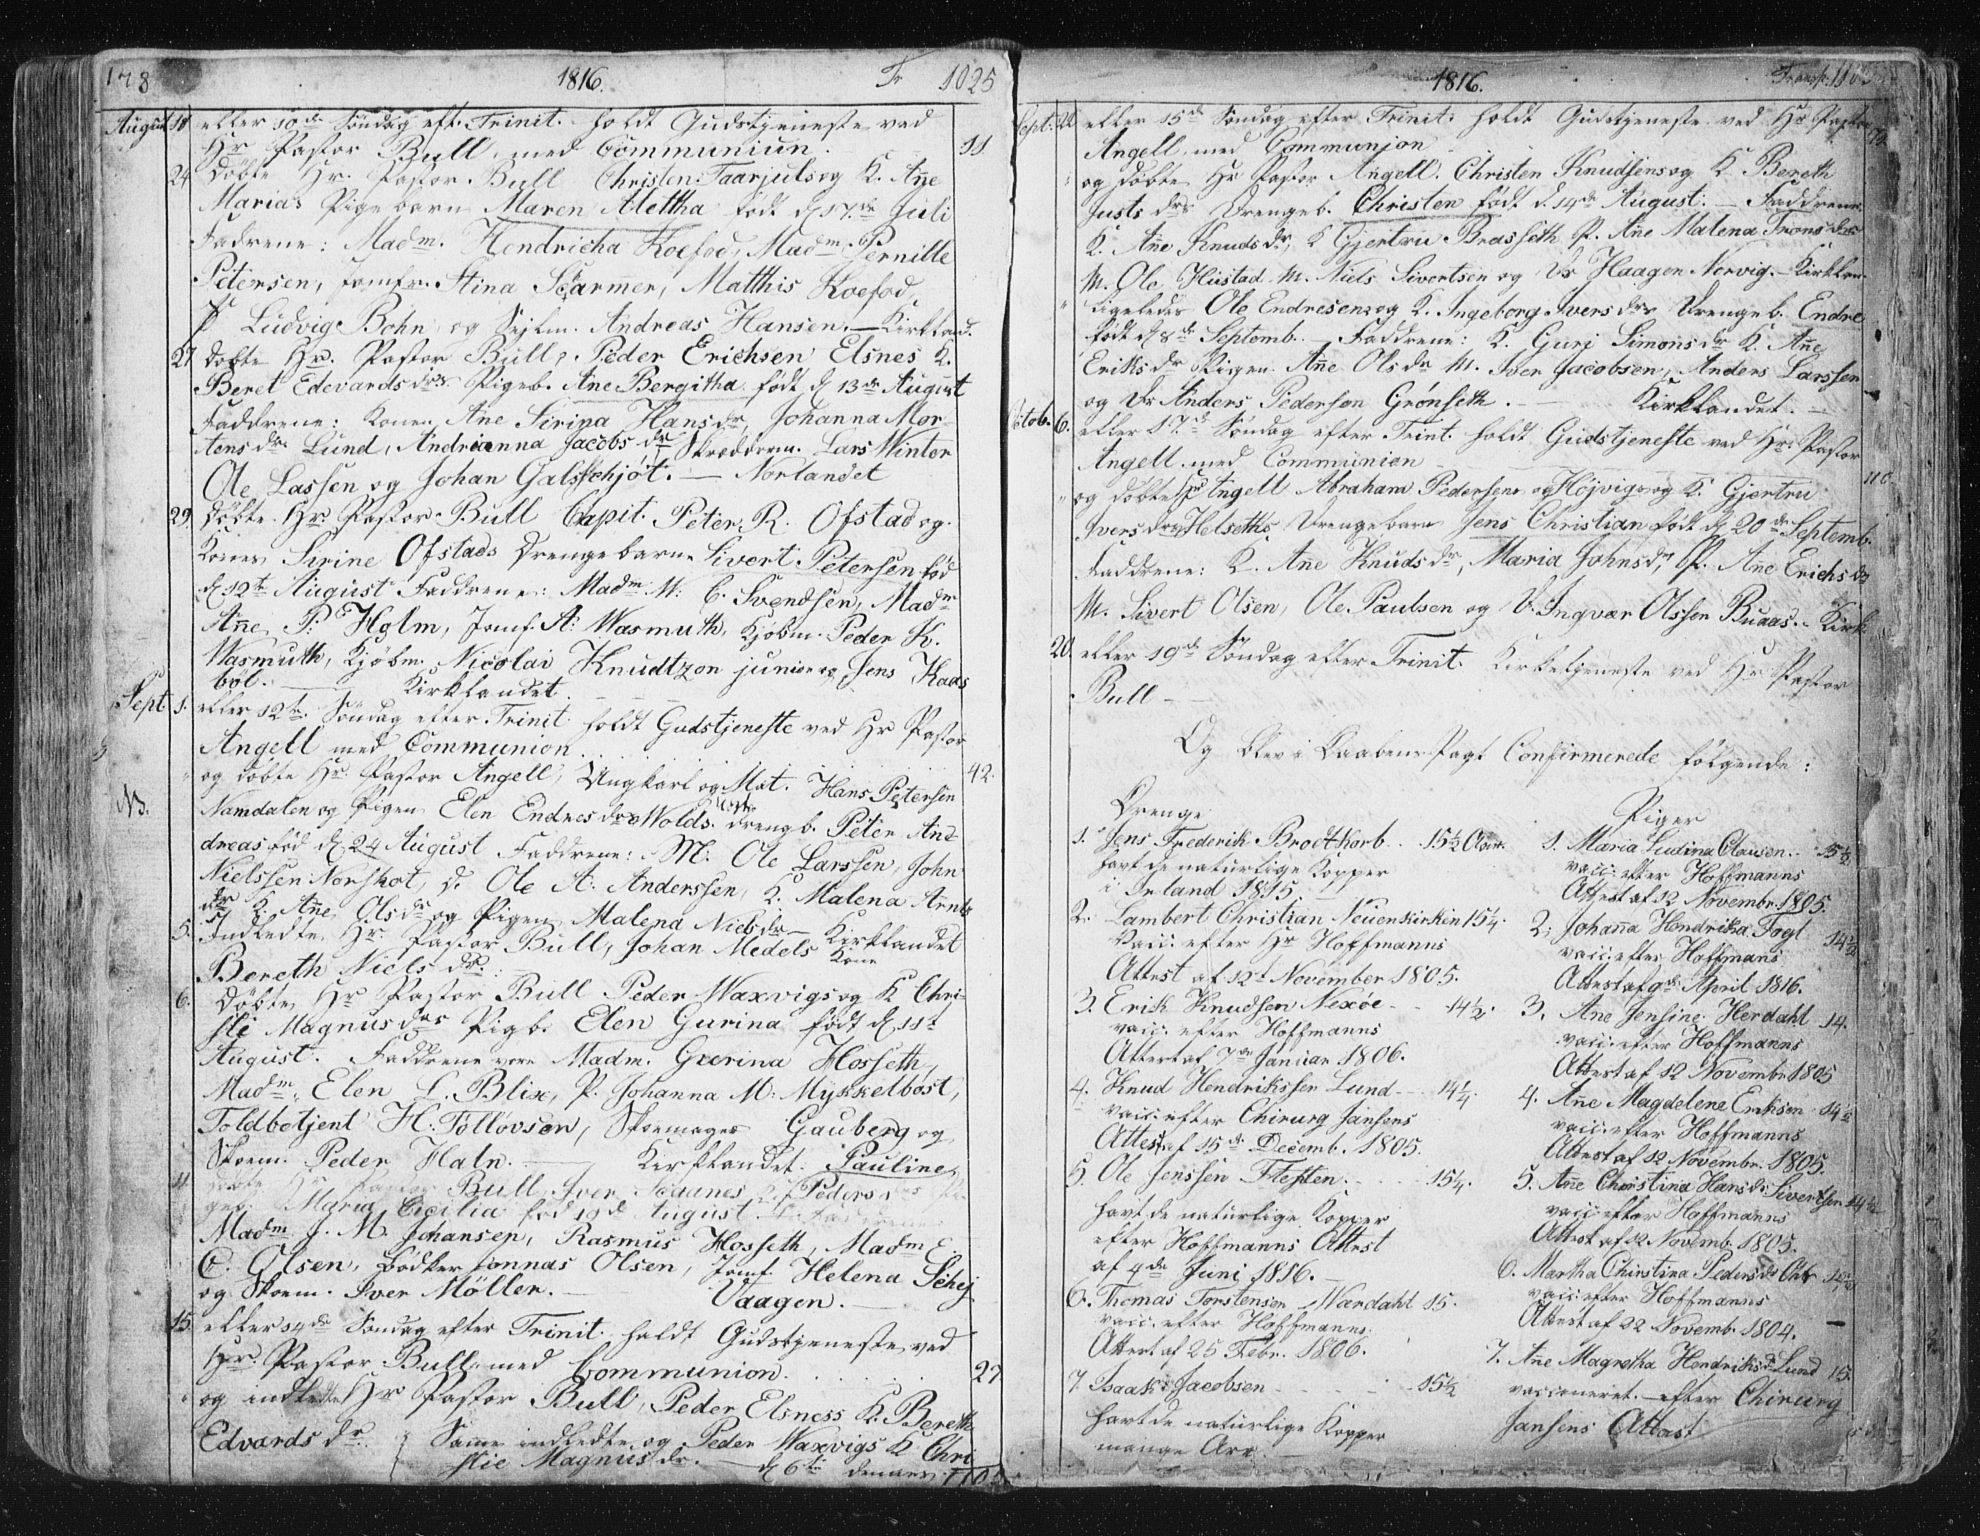 178 1816. Tr 1025
August 18 eller 10de Søndag eft. Trinit. holdt Gudstjeneste ved
Hr Pastor Bull, med Communiun. 11
24 døbte Hr. Pastor Bull Christen Taarjuls og K. Ane
Marias Pigebarn Maren Alettha født d. 17de Juli
Fadrene: Madm. Hendricha Koefod, Madm Pernille
Petersen, Jomfr. Stina Scharmer, Matthis Koefod,
P Ludvig Bohn og Sejlm. Andreas Hansen. — Kirkland.
27 døbte Hr. Pastor Bull, Peder Erichsen Elsnes K.
Beret Edevardsdrs Pigeb. Ane Bergitha født d 13de August
Faddrene: Konen Ane Sirina Hansdr, Johanna Mor-
tensdr Lund, Andrianna Jacobsdr, Skræderm. Lars Winter
Ole Lassen og Johan Galsschjøt. — Norlandet
29 døbte Hr. Pastor Bull Capit. Peter R. Ofstad og
Konen Sirine Ofstads Drengebarn Sivert Petersen fød
d 12te August Faddrene: Madm M: C. Svendsen, Madm
Ane P: Holm, Jomf. A: Wasmuth, Kjøbm. Peder K.
Wasmuth, Kjøbm. Nicolai Knudtzon junior og Jens Kads
bøl. Kirklandet.
Sept 1. eller 12te Søndag efter Trinit holdt Gudstjeneste ved Hr Pastor
Angell med Communion. 42.
" og døbte Hr. Pastor Angell, Ungkarl og Mat. Hans Petersen
NB. Namdalen og Pigen Elen Endresdr Wolds drengb. Peter An-
dreas fød d. 24 August Faddrene: M. Ole Larssen, John
Nielssen Norskot, d. Ole A: Anderssen, K. Malena Arnts
dr K Ane Olsdr og Pigen Malena Nielsdr — Kirklandet
5. Indledte Hr. Pastor Bull, Johan Medels Kone
Bereth Nielsdr.
6. døbte Hr Pastor Bull Peder Waxvigs og K Chri-
stie Magnusdrs Pigb. Elen Gurina født d 11te
August. Faddrene vare Madm. Guerina Hosseth,
Madm. Elen L. Blix, P. Johanna M: Mykkelbost,
Toldbetjent H. Tølløvsen, Skoemager Gauberg og
Skoem. Peder Haln. — Kirklandet. Pauline
11 døbte Hr Pastor Bull Iver K. Peders
geb. Maria Cicilia fød 19de August Faddrene
Madm J. M. Johansen, Rasmus Hosseth, Madm E
C. Olsen, Bødker Jonnas Olsen, Jomf. Helena Schej
og Skoem. Iver Møller. Vaagen. —
15 eller 14de Søndag efter Trinit. holdt Gudstjeneste ved
Hr. Pastor Bull, med Communion. 27
" og indledte Hr Pastor Bull, Peder Elsness K. Bereth
Edvardsdr. Samme indledte og Peder Waxvigs K Chri
stie Magnusdr. — d 6te dennes.
1816. Transp.
Sept. 22 eller 15de Søndag efter Trinit. holdt Gudstjeneste ved Hr Pastor
Angell, med Communion
" og døbte Hr Pastor Angell. Christen Knudsens og K Bereth
Justsdrs Drengeb. Christen født d. 14de August. — Faddrene
K. Ane Knudsdr, K Gjertru Brasseth, P. Ane Malena Tronsdr
M. Ole Hustad M. Niels Sivertsen og Dr Haagen Norvig. Kirklan.
" Ligeledes Ole Endresens og K. Ingeborg Iversdrs Drengeb. Endre
født d 8de Septemb. Faddrene: K. Guri Simonsdr K. Ane
Eriksdr Pigen Ane Olsdr M. Iver Jacobsen, Anders Larssen
og Dr Anders Pedersen Grønseth. — Kirklandet. —
Octob. 6. eller 17de Søndag efter Trinit. holdt Gudstjeneste ved Hr. Pastor
Angell, med Communion 110
" og døbte Hr Angell Abraham Pedersens Højvigs og K. Gjertru
Iversdr Helseths Drengebarn Jens Christian født d 20de Septemb.
Faddrene: K. Ane Knudsdr, Maria Johnsdr, P. Ane Erichsdr
M. Sivert Olsen, Ole Paulsen og U. Ingvar Olssen Buaas. — Kirk
20. eller 19de Søndag efter Trinit. Kirketjeneste ved Hr Pastor
Bull —
Og blev i Daabens Pagt Confirmerede følgende:
Drenge
1. Jens Frederik Brodtkorb .. 15½ Aar.
havt de naturlige Kopper
i Irland 1815.
2. Lambert Christian Neuenkirken 15¼.
Vacc. efter Hr Hoffmanns
Attest af 12t November 1805.
3. Erik Knudsen Nexøe 14½.
vacc. efter Hoffmanns
Attest af 7de Januar 1806.
4. Knud Hendrikssen Lund 14¼.
vacc. efter Chirurg Jansens
Attest af 15de Decemb. 1805.
5. Ole Jenssen Flesten. 15¼.
havt de naturlige Kopper
efter Hoffmanns Attest
af 4de Juni 1816.
6. Thomas Torstensen Wardahl 15.
vacc. efter Hoffmanns
Attest af 25 Febr. 1806.
7. Isaak Jacobsen 15½
havt de naturlige Kopper
mange Aar
Piger
1. Maria Ludina Clausen 15½
vacc. efter Hoffmanns
Attest af 12 Novembr. 1805.
2. Johana Hendrika Fogl 14½
vacc. efter Hoffmans
Attest af 9de April 1816.
3. Ane Jensine Herdahl 14.
vacc. efter Hoffmanns
Attest af 12 Novembr 1805
4. Ane Magdelene Eriksen 14½
vacc. efter Hoffmanns
Attest af 12 Novembr. 1805.
5. Ane Christina Hansdr Sivertsen 14½
vacc. efter Hoffmanns
Attest af 12 Novemb. 1805.
6. Martha Christina Pedersdr
vacc. efter Hoffmanns
Attest af 22 Novemb. 1804.
7. Ane Magretha Hendriksdr Lund 15.
vaccineret. efter Chirurg
Jansens Attest